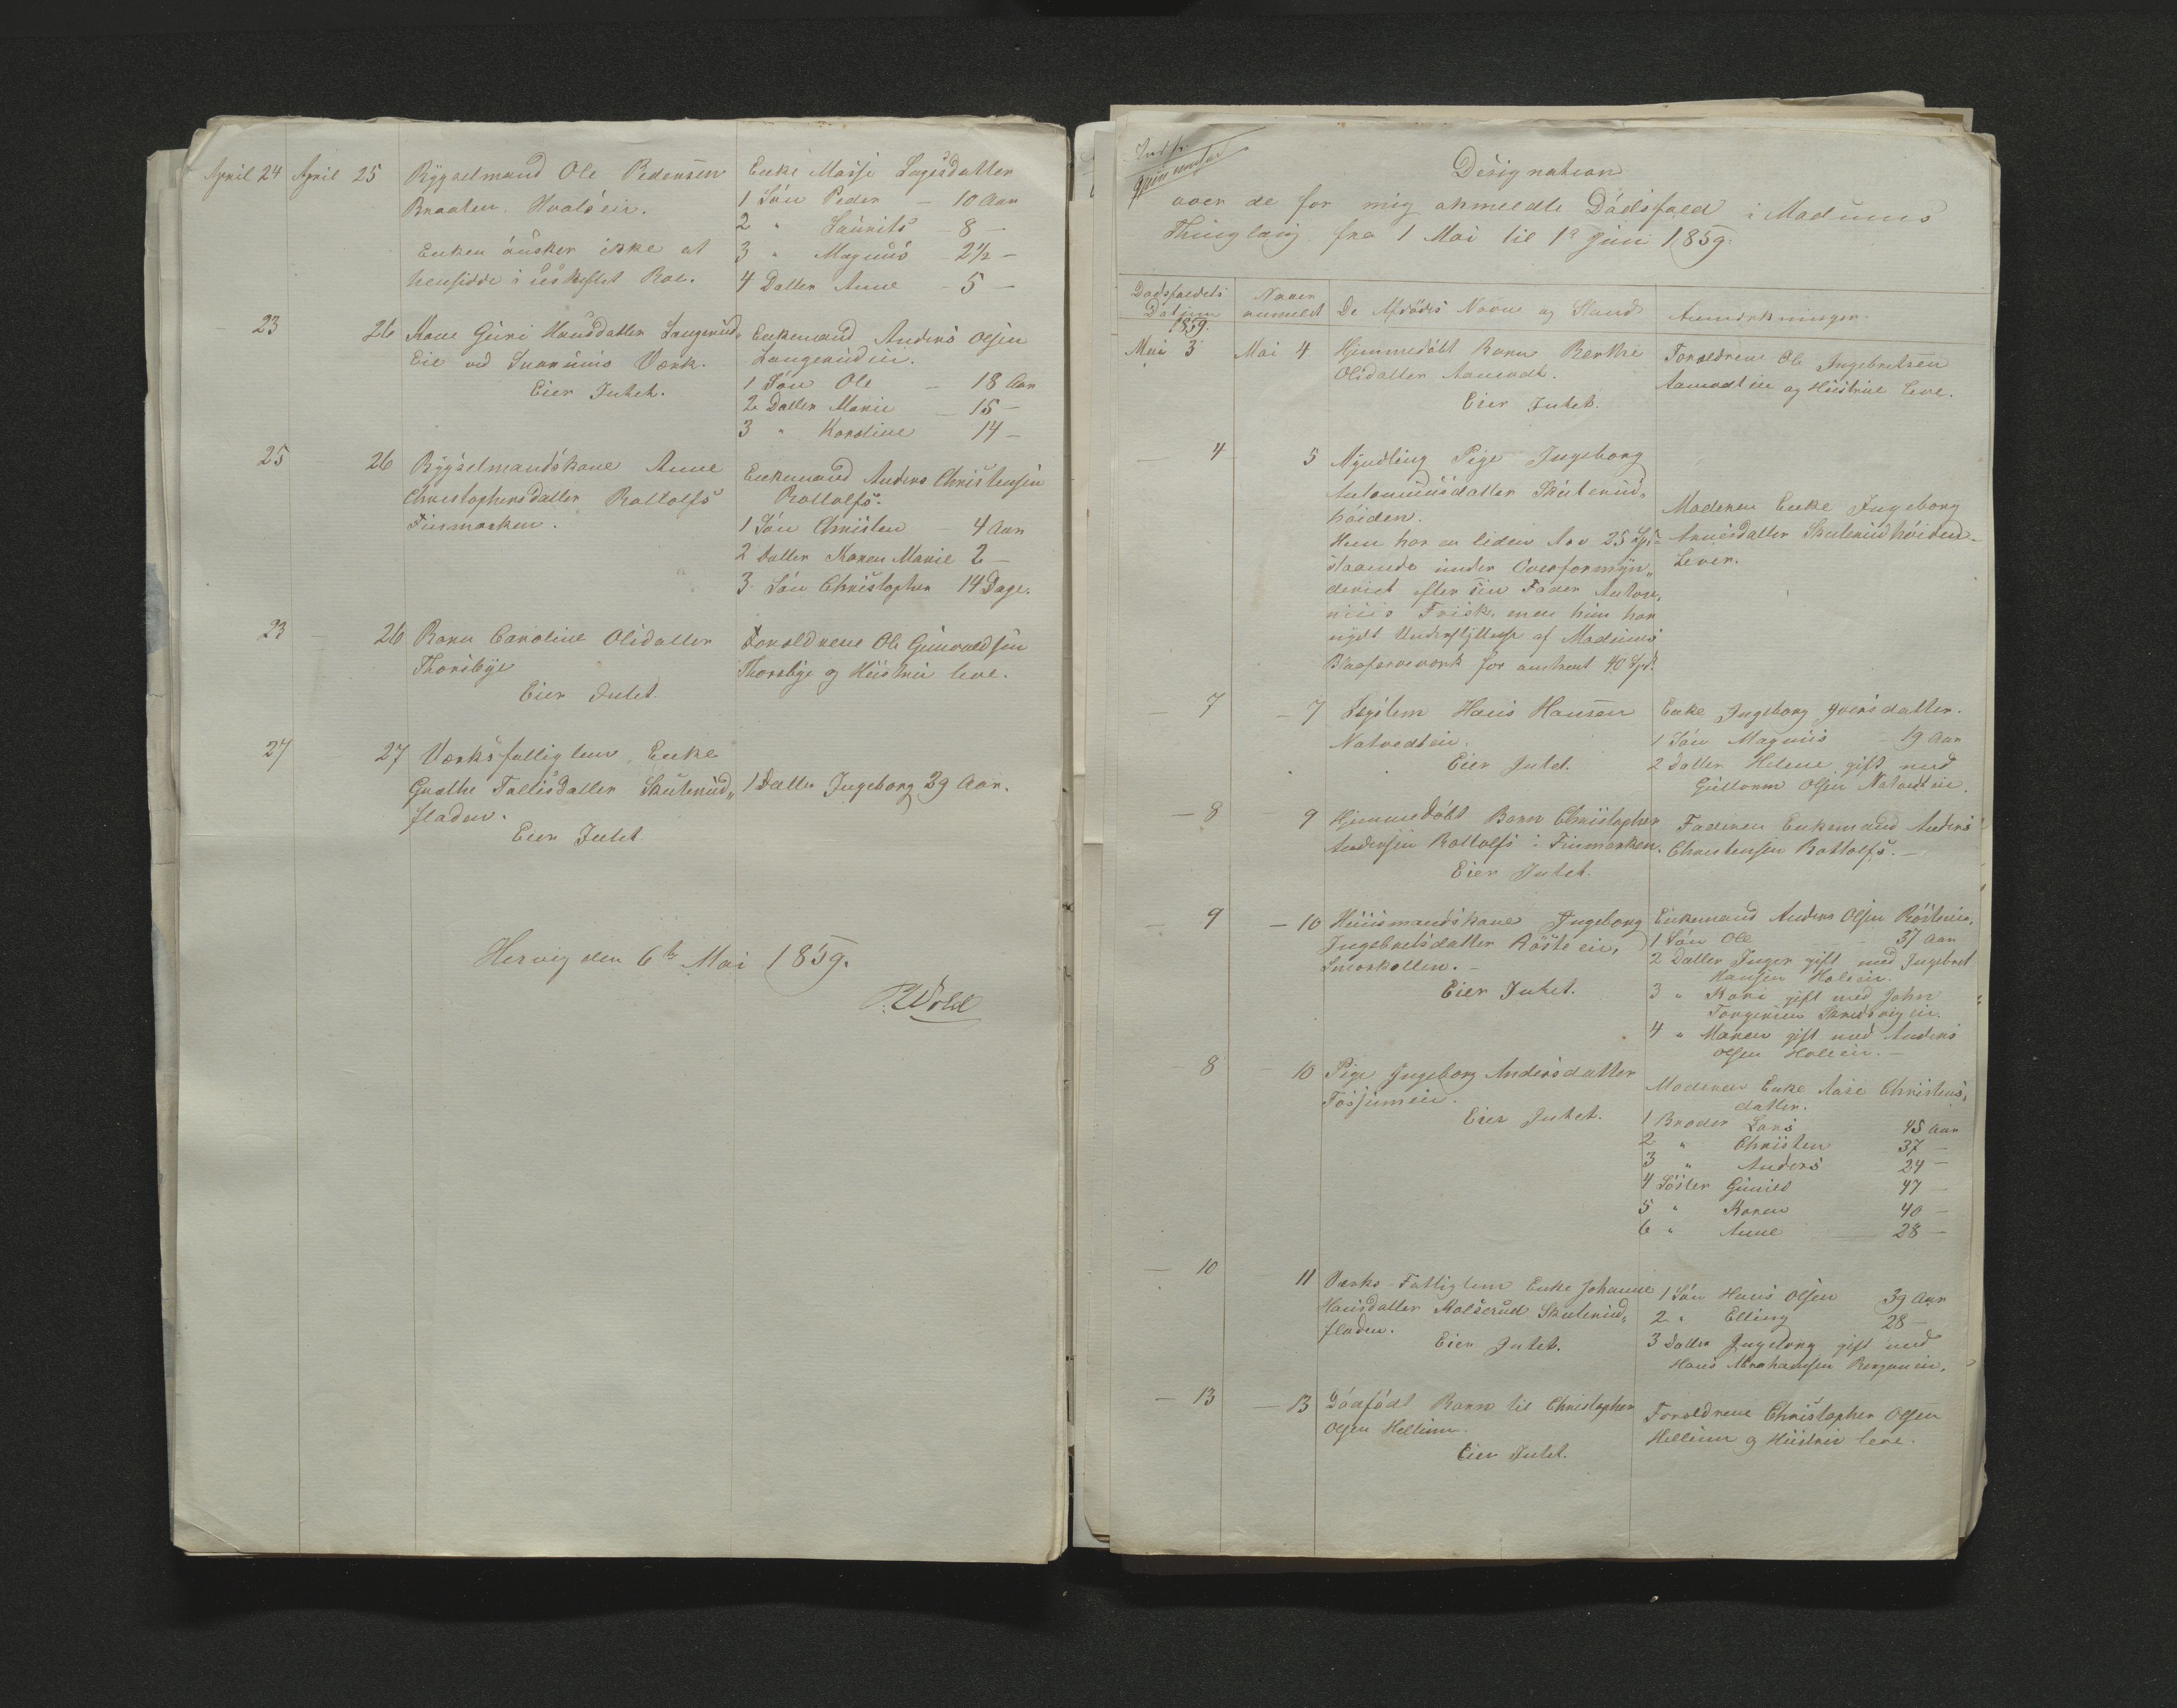 April 24 April 25 Bygselmand Ole Pedersen
Braaten Hvalseie.
Enken önsker ikke at
hensidde i uskiftet Boe.
Enke Marje Lagesdatter
1 Sön Peder – 10 Aar
2 " Laurits – 8 –
3 " Magnus – 2½ –
4 Datter Anne – 5 –
23 26 Kone Guri Hansdatter Langerud
Eie ved Snarums Værk.
Eier Intet.
Enkemand Anders Olsen
Langerudeie.
1 Sön Ole – 18 Aar
2 Datter Marie – 15 –
3 " Karoline 14 –
25 26 Bygselmandskone Anne
Christophersdatter Rallolfs
Finmarken.
Enkemand Anders Christensen
Rallolfs.
1 Sön Christen – 4 Aar
2 Datter Karen Marie 2 –
3 Sön Christopher 14 Dage.
23 – 26 Barn Caroline Olsdatter
Thorsbye
Eier Intet.
Forældrene Ole Gunvaldsen
Thorsbye og Hustru leve.
27 27 Værksfattiglem, Enke
Grethe Tollisdatter Skuterud„
fladen.
Eier Intet
1 Datter Ingeborg 39 Aar.
Hervig den 6te Mai 1859.
P. Wold
Designation
over de for mig anmeldte Dödsfald i Modums
Thinglaug fra 1 Mai til 1e Juni 1859.
Dödsfaldets
Datum
1859.
Naar
anmeldt
De Afdödes Navne og Stand
Anmærkninger.
Mai 3 Mai 4 Hjemmedöbt Barn Berthe
Olsdatter Aamodt.
Eier Intet.
Forældrene Ole Ingebretsen
Aamodteie og Hustrue leve.
– 4 5 Myndling Pige Ingeborg
Antoniusdatter Skuterud„
höiden.
Hun har en liden Arv 25 Spd
staaende under Overformyn„
deriet efter sin Fader Anton„
nius Frisk, men hun har
nydt Understyttelse af Modums
Blaafarveværk for omtrent 40 Spd.
Moderen Enke Ingeborg
Arnesdatter Skuterudhöiden
Lever.
– 7 – 7 Lægslem Hans Hansen
Natvedteie.
Eier Intet.
Enke Ingeborg Iversdatter.
1 Sön Magnus – 19 Aar
2 Datter Helene gift med
Guttorm Olsen Natvedteie.
– 8 9 Hjemmedöbt Barn Christopher
Andersen Rallolfs i Finmarken.
Eier Intet.
Faderen Enkemand Anders
Christensen Rallolfs. –
– 9 – 10 Huusmandskone Ingeborg
Ingebretsdatter Rösteeie,
Snorkollen. –
Eier Intet.
Enkemand Anders Olsen Rösteeie.
1 Sön Ole – 37 Aar
2 Datter Inger gift med Ingebret
Hansen Holeeie.
3 " Kari gift med John
Torgersen Skredsvigeie.
4 " Maren gift med Anders
Olsen Holeeie. –
– 8 – 10 Pige Ingeborg Andersdatter
Fossumeie.
Eier Intet.
Moderen Enke Aase Christens„
datter.
1 Broder Lars 45 Aar
2 " Christen 37 –
3 " Anders 24 –
4 Söster Gunild 47 –
5 " Karen 40 –
6 " Anne 28 –
– 10 11 Værks-Fattiglem Enke Johanne
Hansdatter Kolserud Skuterud„
fladen.
Eier Intet.
1 Sön Hans Olsen 39 Aar
2 " Elling 28 –
3 Datter Ingeborg gift med
Hans Abrahamsen Berganeie.
– 13 – 13 Dödfödt Barn til Christopher
Olsen Hellum.
Eier Intet.
Forældrene Christopher Olsen
Hellum og Hustru leve.